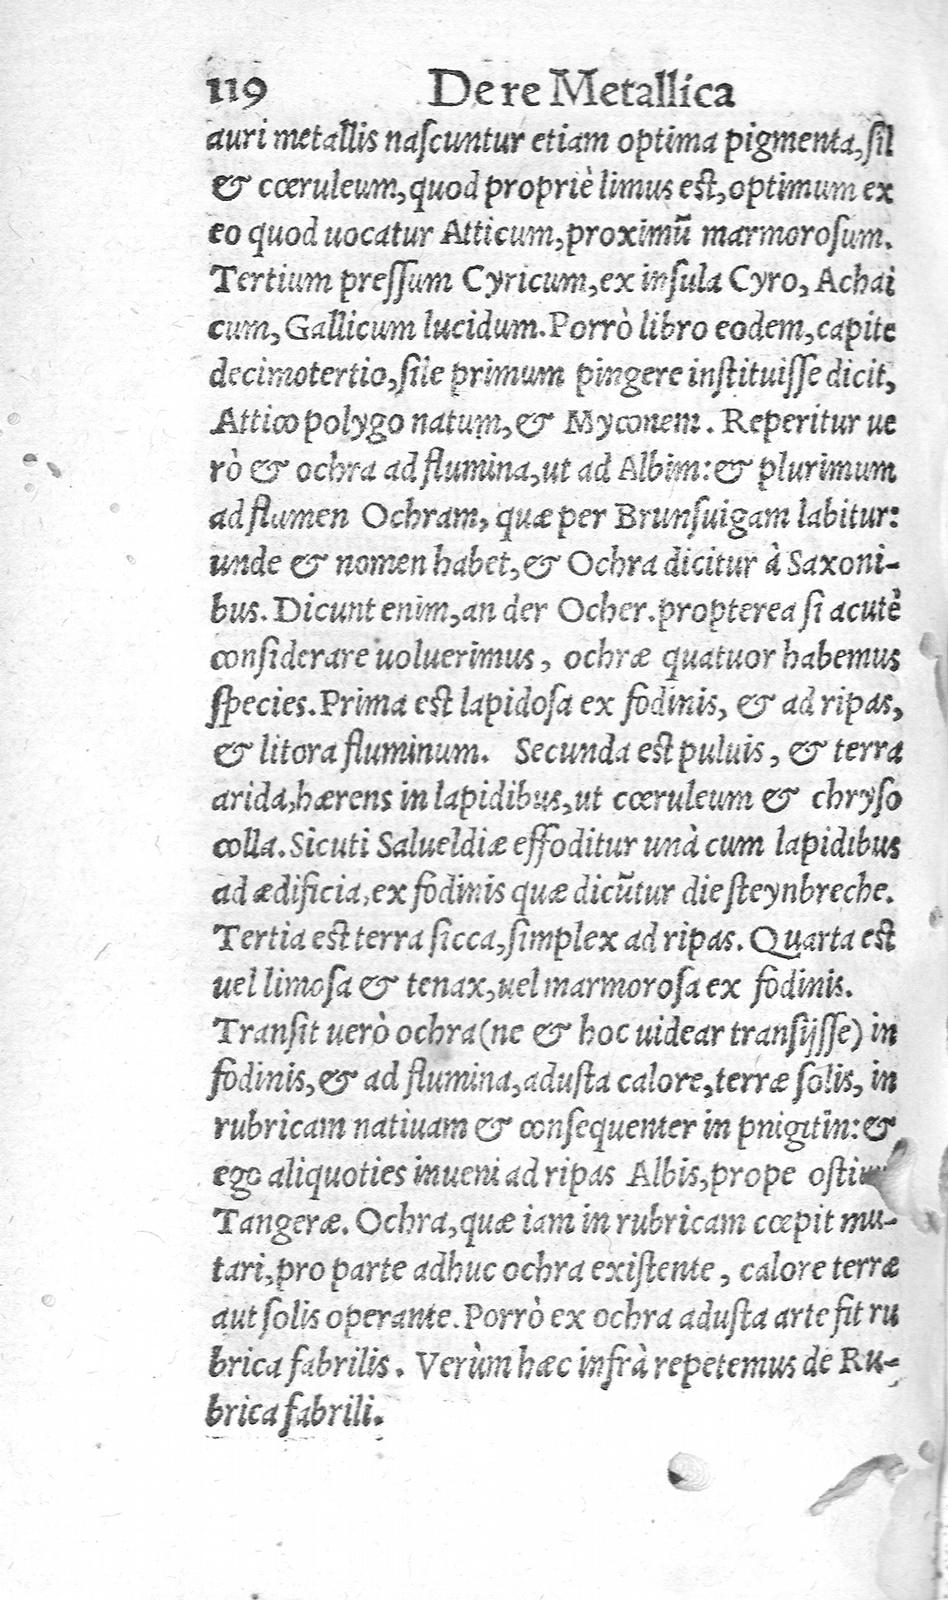 119 De re Metallica
auri metallis naſcuntur etiam optima pigmenta, ſil
& cœruleum, quod propriè limus eſt, optimum ex
eo quod uocatur Atticum, proximũ marmoroſum.
Tertium preſſum Cyricum, ex inſula Cyro, Achai
cum, Gallicum lucidum. Porrò libro eodem, capite
decimotertio, ſile primum pingere inſtituiſſe dicit,
Attico polygo natum, & Myconem. Reperitur ue
rò & ochra ad flumina, ut ad Albim: & plurimum
ad flumen Ochram, quæ per Brunſuigam labitur:
unde & nomen habet, & Ochra dicitur à Saxoni-
bus. Dicunt enim, an der Ocher. propterea ſi acutè
conſiderare uoluerimus, ochræ quatuor habemus
ſpecies. Prima eſt lapidoſa ex fodinis, & ad ripas,
& litora fluminum. Secunda eſt puluis, & terra
arida, hærens in lapidibus, ut cœruleum & chryſo
colla. Sicuti Salueldiæ effoditur unà cum lapidibus
ad ædificia, ex fodinis quæ dicũtur die ſteynbreche.
Tertia eſt terra ſicca, ſimplex ad ripas. Quarta eſt
uel limoſa & tenax, uel marmoroſa ex fodinis.
Tranſit uerò ochra (ne & hoc uidear tranſijſſe) in
fodinis, & ad flumina, aduſta calore, terræ ſolis, in
rubricam natiuam & conſequenter in pnigitin: &
ego aliquoties inueni ad ripas Albis, prope
Tangeræ. Ochra, quæ iam in rubricam cœpit mu-
tari, pro parte adhuc ochra exiſtente, calore terræ
aut ſolis operante. Porrò ex ochra aduſta arte fit ru
brica fabrilis. Verùm hæc infrà repetemus de Ru-
brica fabrili.